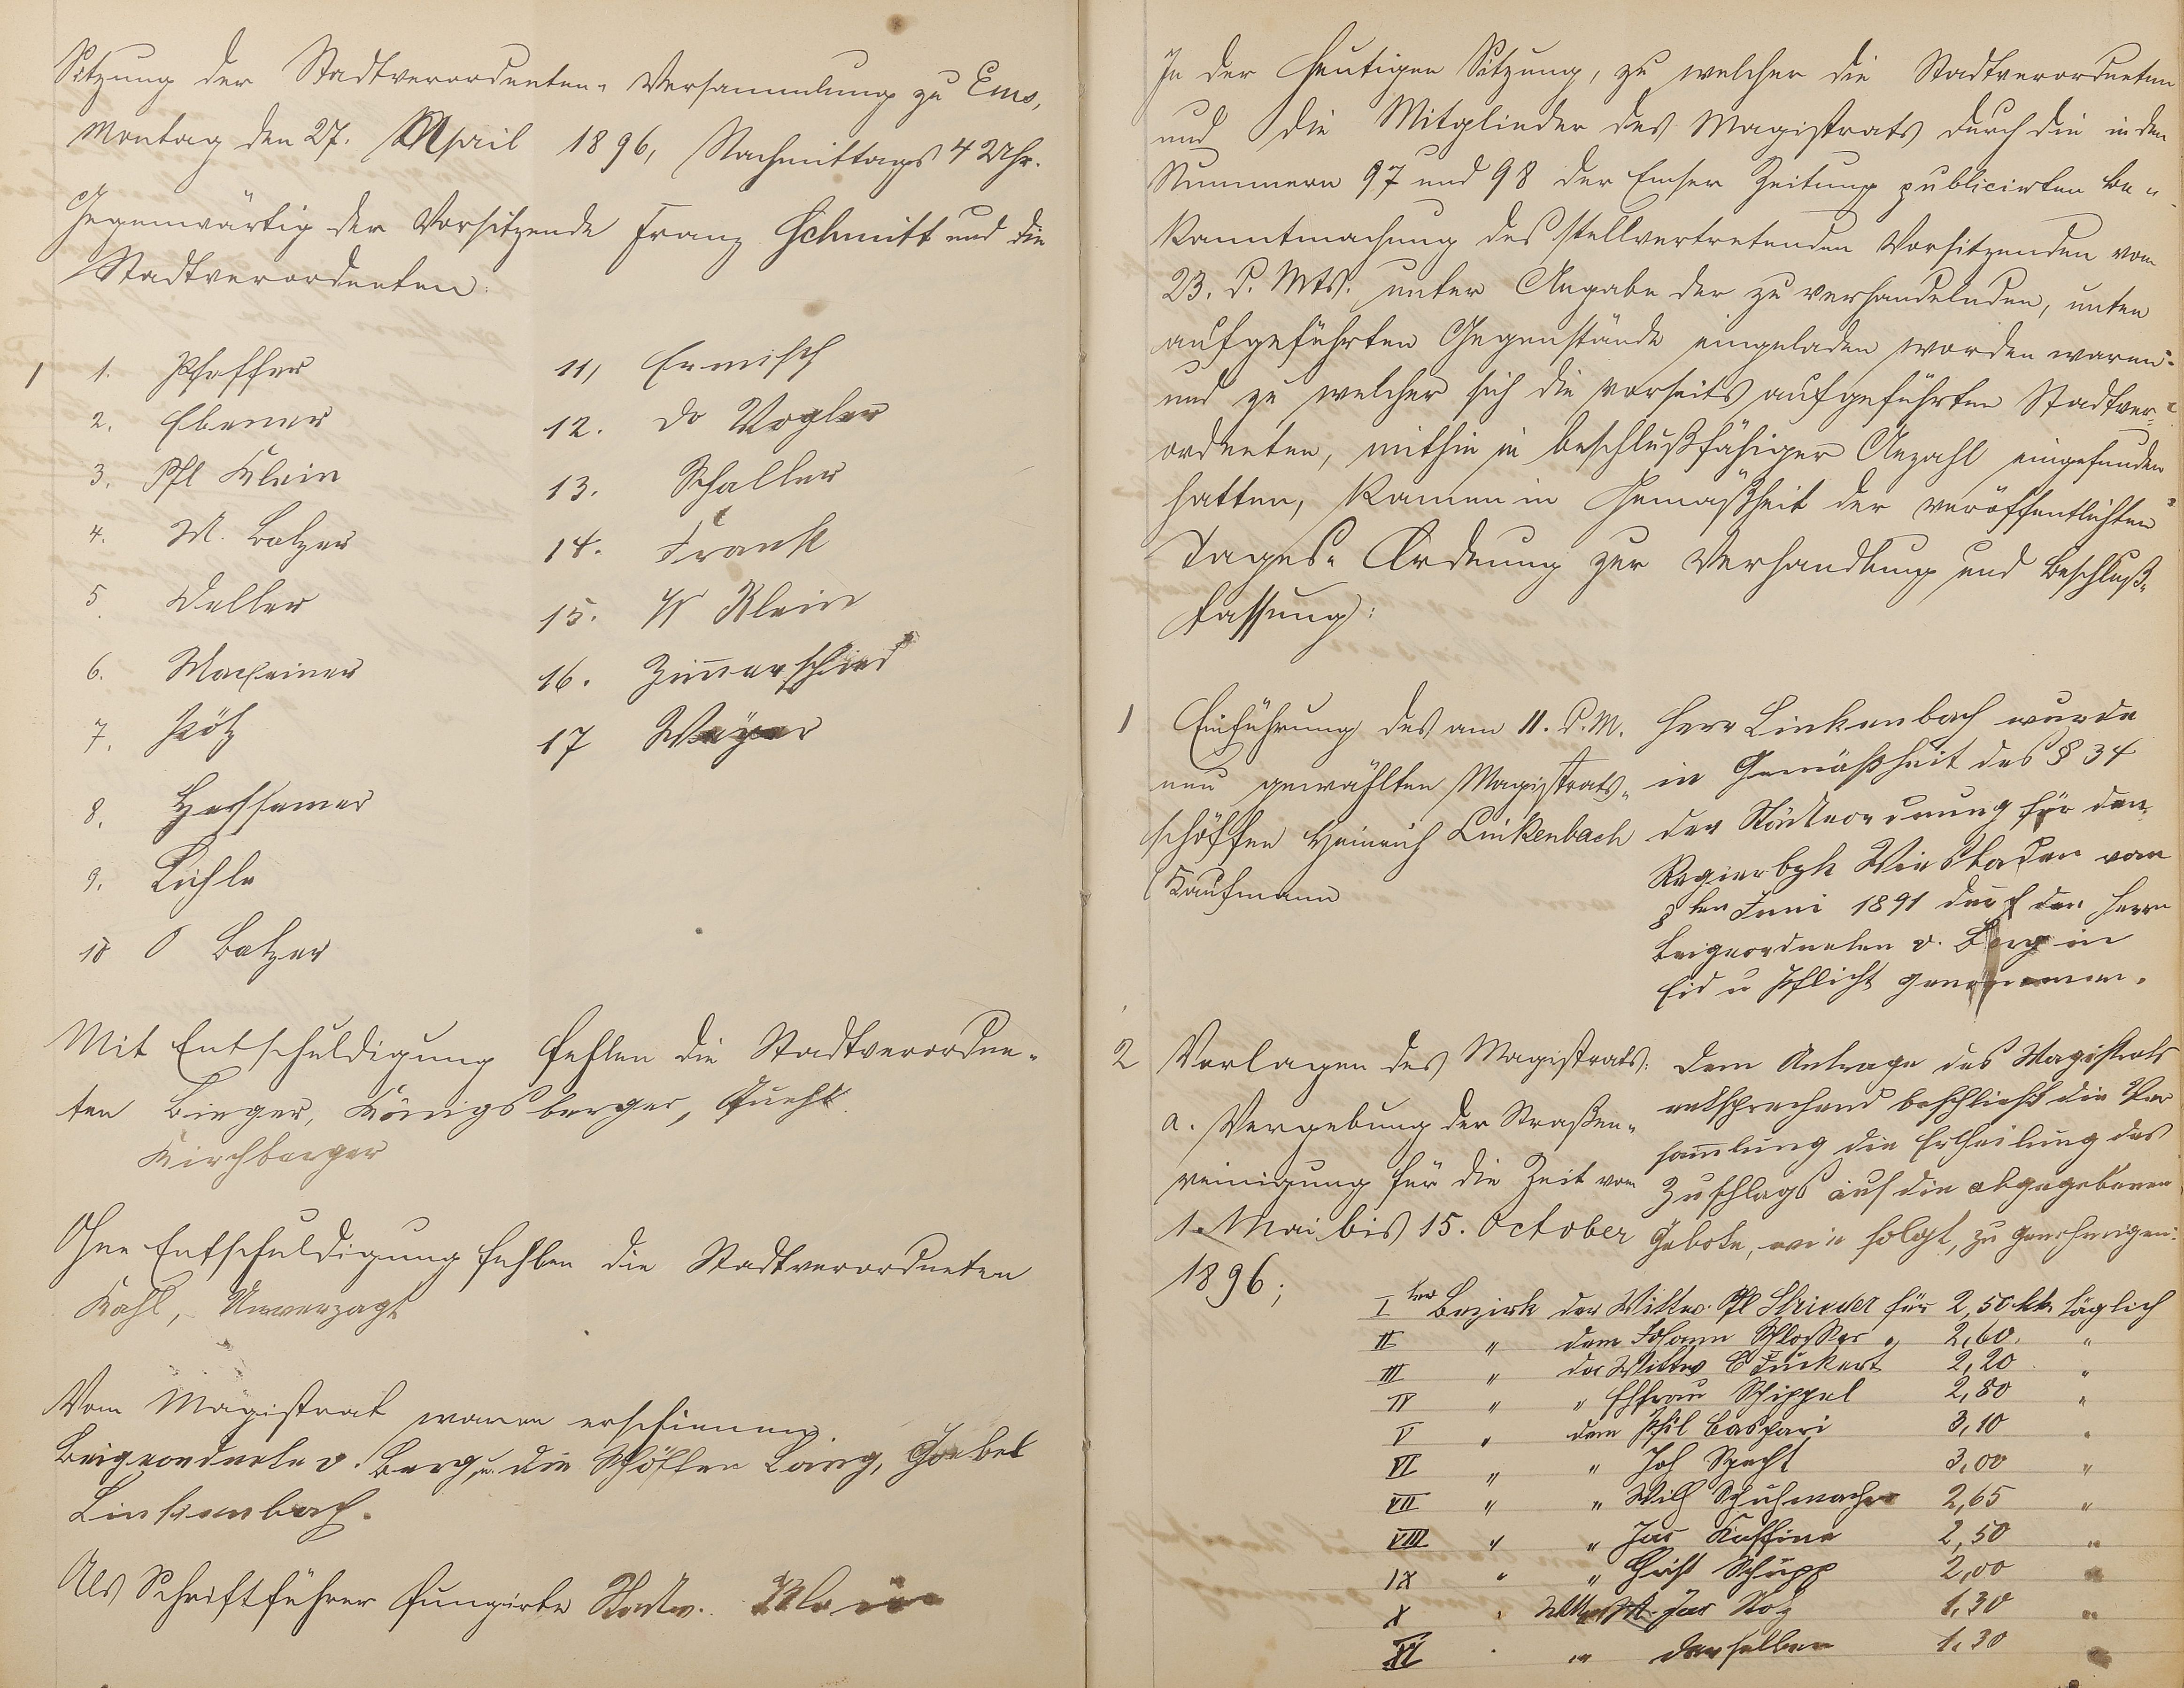 Sitzung der Stadtverordneten-Versammlung zu Ems,
Montag den 27. April 1896, Nachmittags 4 Uhr.
Gegenwärtig der Vorsitzende Franz Schmitt und die
Stadtverordneten:
1 1. Pfeffer
2. Ebener
3. Phl Klein
4. M. Balzer
5. Deller
6. Macheiner
7. Pötz
8. Hessemer
9. Lischle
10 O Balzer
11, Ermisch
12. Dr Vogler
13. Schaller
14. Frank
15. W Klein
16. Zimmerschied
17 Weyer
Mit Entschuldigung fehlen die Stadtverordne-
ten Binger, Königsberger,
Kirchberger
Ohne Entschuldigung fehlen die Stadtverordneten
Kahl, Unverzagt
Vom Magistrat waren erschienen
Beigeordnete v. Berg, u. die Schöffen Lang, Goebel
Linkenbach.
Als Schriftführer fungirte Stadtv. Klein
In der heutigen Sitzung, zu welcher die Stadtverordneten
und die Mitglieder des Magistrats durch die in den
Nummern 97 und 98 der Emser Zeitung publicirten Be-
kanntmachung des stellvertretenden Vorsitzenden vom
23. d. Mts. unter Angabe der zu verhandelnden, unten
aufgeführten Gegenstände eingeladen worden waren
und zu welcher sich die vorseits aufgeführten Stadtver-
ordneten, mithin in beschlußfähiger Anzahl eingefunden
hatten, kamen in Gemäßheit der veröffentlichten
Tages-Ordnung zur Verhandlung und Beschluß-
fassung:
1 Einführung des am 11. d. M.
neu gewählten Magistrats-
schöffen Heinrich Linkenbach
Kaufmann
Herr Linkenbach wurde
in Gemäßheit des § 34
der Städteordnung für den
Regierbzk Wiesbaden vom
8ten Juni 1891 durch den Herrn
Beigeordneten v. Berg in
Eid u Pflicht genommen.
2 Vorlagen des Magistrats:
a. Vergebung der Straßen-
reinigung für die Zeit vom
1. Mai bis 15. October
1896;
Dem Antrage des Magistrats
entsprechend beschließt die Ver
sammlung die Ertheilung des
Zuschlags auf die abgegebenen
Gebote, wie folgt, zu genehmigen:
I ter Bezirk der Wittwe Phl Strieder für 2,50 Mk täglich
II " dem Johann Schlosser " 2,60. "
III " der Wittwe C Fuckert 2,20 "
IV " " Ehefrau Schippel 2,80 "
V " dem Phil Caspari 3,10 "
VI " " Joh Specht 3,00 "
VII " " Wilh Schuhmacher 2,65 "
VIII " " Jac Kaffine 2,50 "
IX " " Christ Schupp 2,00 "
X " Wtwe Jac Stotz 1,30 "
XI " " derselben 1,30 "